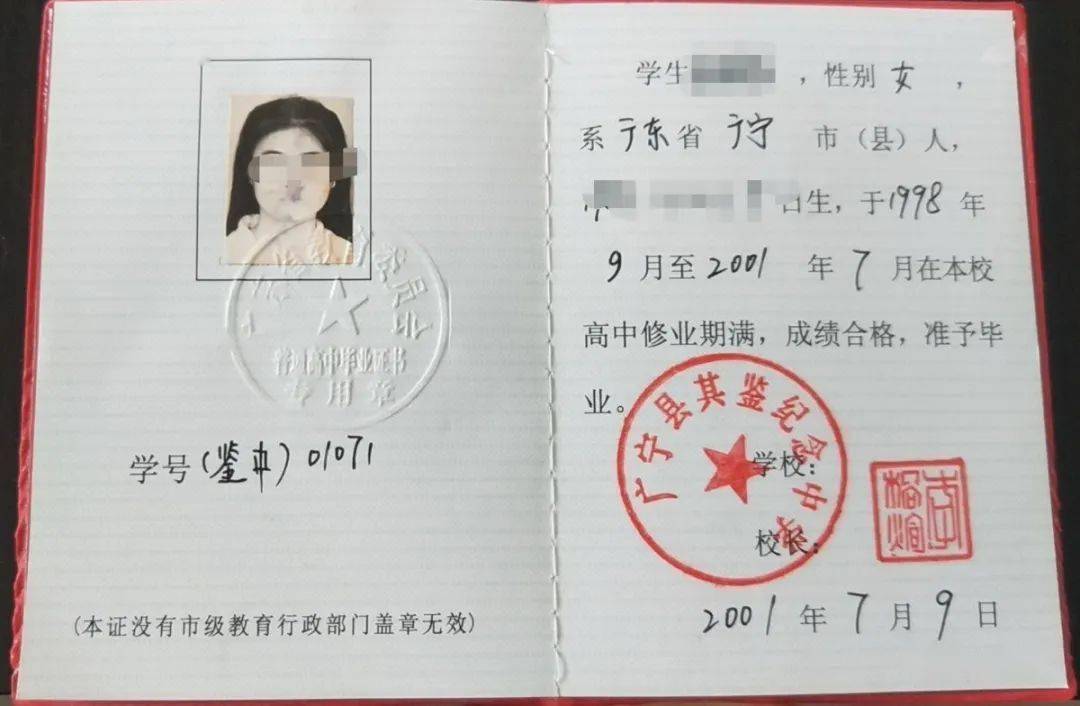 普通高中毕业证书
专用章
学号(鉴中)01071
(本证没有市级教育行政部门盖章无效)
学生 ,性别 女 ,
系 广东 省 广宁 市(县)人,
日生,于1998 年
9 月至 2001 年 7 月在本校
高中修业期满,成绩合格,准予毕
业。
广宁县其鉴纪念中学
学校:
校长:
2001 年 7 月 9 日